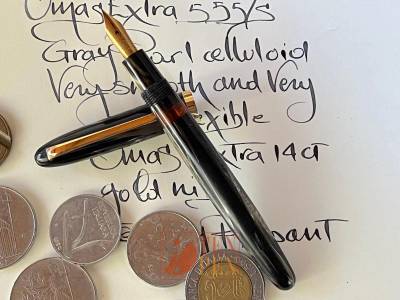 Omas Extra 555/s
Gray Pearl celluloid
Very smooth and Very
flexible
Omas Extra 14ct
gold